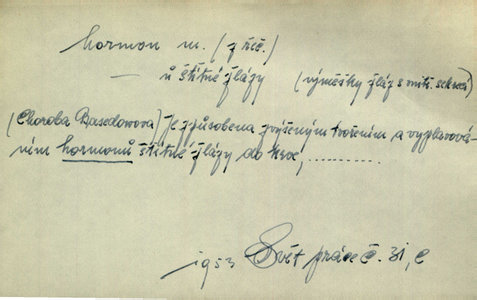 hormon m. (z řeč.)
— ů štítné žlázy (výměšky žláz s vnitř. sekrecí)
(Choroba Basedowova) je způsobena zvýšeným tvořením a vyplavová-
ním hormonů štítné žlázy do krve, ...........
1953 Svět práce č. 31,